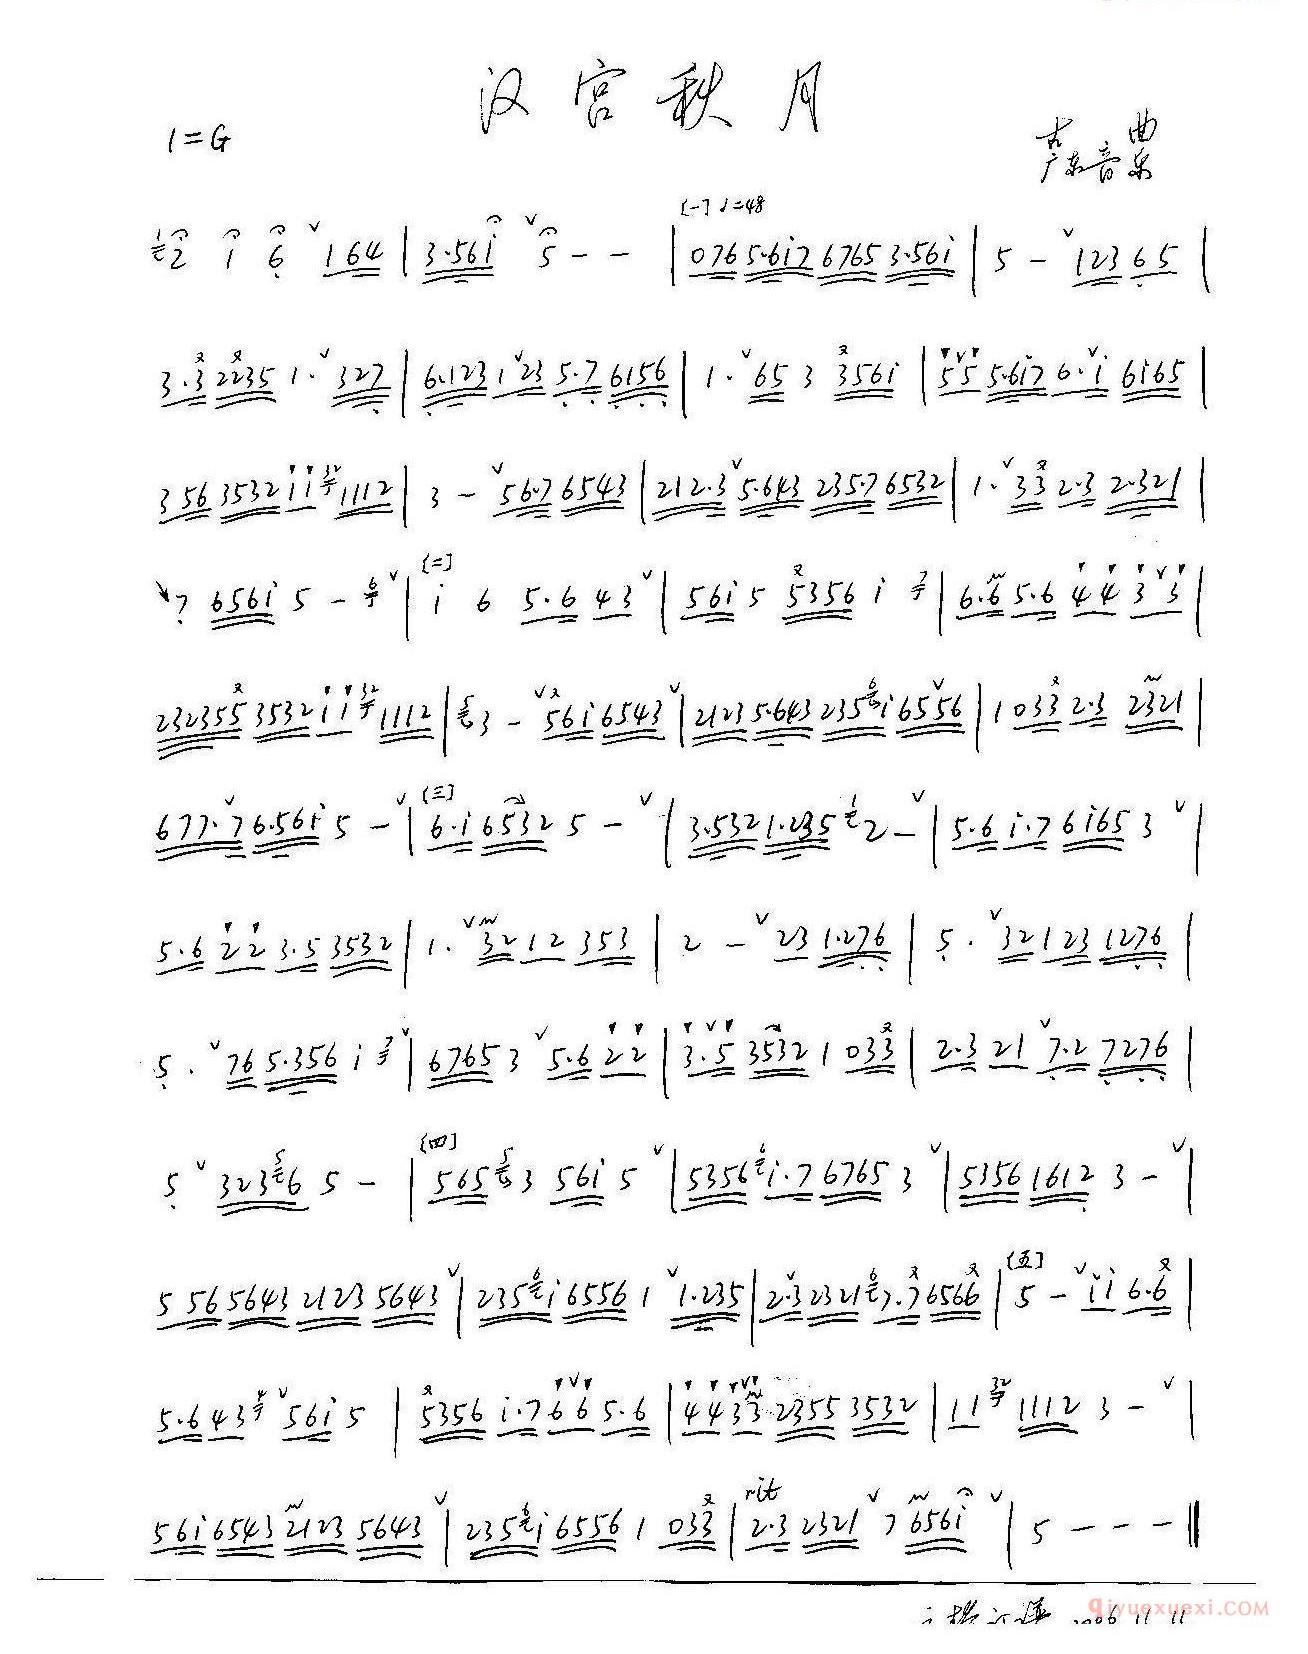 汉宫秋月
1=G
古曲
广东音乐
2 i 6 164 | 3·56i 5 - - | [一] ♩=48 076 5·6i7 6765 3·56i | 5 - 123 65 |
3·3 2235 1· 327 | 6·123 123 5·7 6156 | 1· 65 3 3561 | 55 5·6i7 6·i 6i65 |
356 3532 ii 1112 | 3 - 56·7 6543 | 212·3 5·643 235·7 6532 | 1· 33 2·3 2·321 |
7 656i 5 - | [二] i 6 5·6 43 | 56i 5 5356 i | 6·6 5·6 44 33 |
232355 3532 ii 1112 | 3 - 56i 6543 | 2123 5·643 235i 6556 | 1 033 2·3 2321 |
677·7 6·56i 5 - | [三] 6·i 6532 5 - | 3·532 1·235 2 - | 5·6 i·7 6i65 3 |
5·6 22 3·5 3532 | 1· 32 12 353 | 2 - 23 1·276 | 5· 32 123 1276 |
5· 76 5·356 i | 6765 3 5·6 22 | 3·5 3532 1 033 | 2·3 21 7·2 7276 |
5 3236 5 - | [四] 565 3 56i 5 | 5356 i·7 6765 3 | 5356 1612 3 - |
5 56 5643 2123 5643 | 235i 6556 1 1·235 | 2·3 2321 7·7 6566 | [五] 5 - ii 6·6 |
5·6 43 56i 5 | 5356 i·7 66 5·6 | 44 33 2355 3532 | 11 1112 3 - |
56i 6543 2123 5643 | 235i 6556 1 033 | rit 2·3 2321 7 656i | 5 - - - ‖
qiyuexuexi.COM